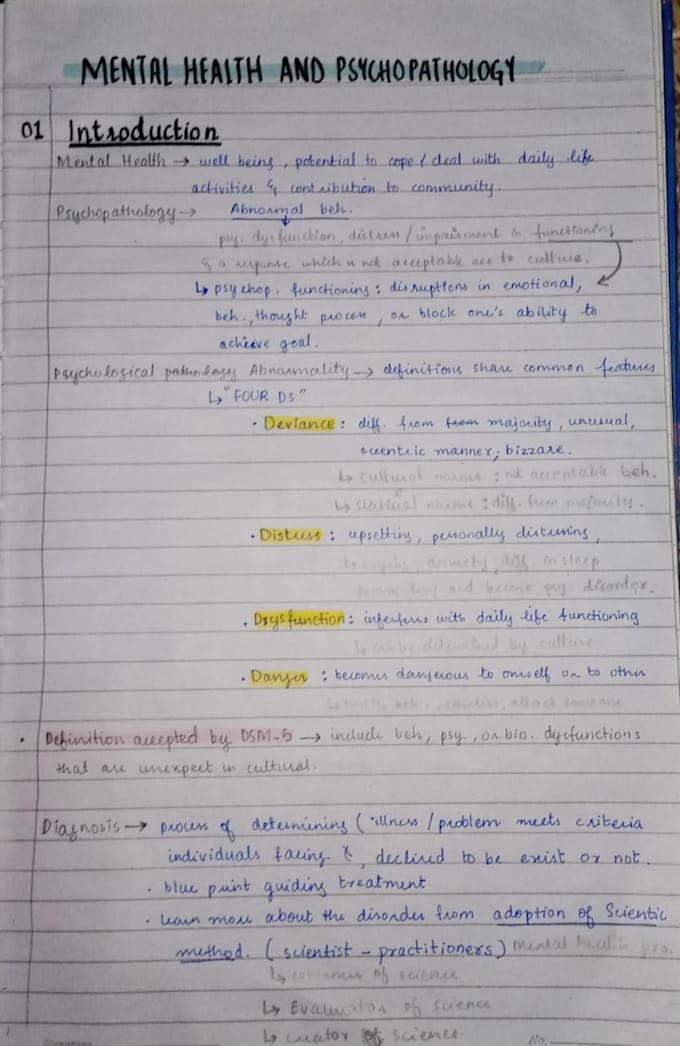 MENTAL HEALTH AND PSYCHOPATHOLOGY
01 Introduction
Mental Health → well being, potential to cope / deal with daily life
activities & contribution to community.
Psychopathology → Abnormal beh.
psy. dysfunction, distress / impairment in functioning
& a response which is not acceptable acc to culture.
↳ psychop. functioning : disruptions in emotional,
beh., thought process, or block one's ability to
achieve goal.
Psychological Abnormality → definitions share common features
↳ "FOUR DS"
• Deviance : diff. from from majority, unusual,
eccentric manner; bizzare.
↳ cultural norms : not acceptable beh.
↳ statiscal norms : diff. from majority.
• Distress : upsetting, personally distressing,
anxiety, diff. in sleep
and become psy. disorder.
• Dsysfunction : inferferes with daily life functioning
↳ can be determined by culture
• Danger : becomes dangerous to oneself or to other
beh., attack someone
• Definition accepted by DSM-5 → include beh, psy., or bio. dysfunctions
that are unexpect in cultural.
Diagnosis → process of determining ( illness / problem meets criteria
individuals facing, declired to be exist or not.
• blue print guiding treatment
• learn more about the disorder from adoption of Scientic
method. ( scientist - practitioners ) mental health pro.
↳ consumer of science
↳ Evaluator of science
↳ creator of science
No.